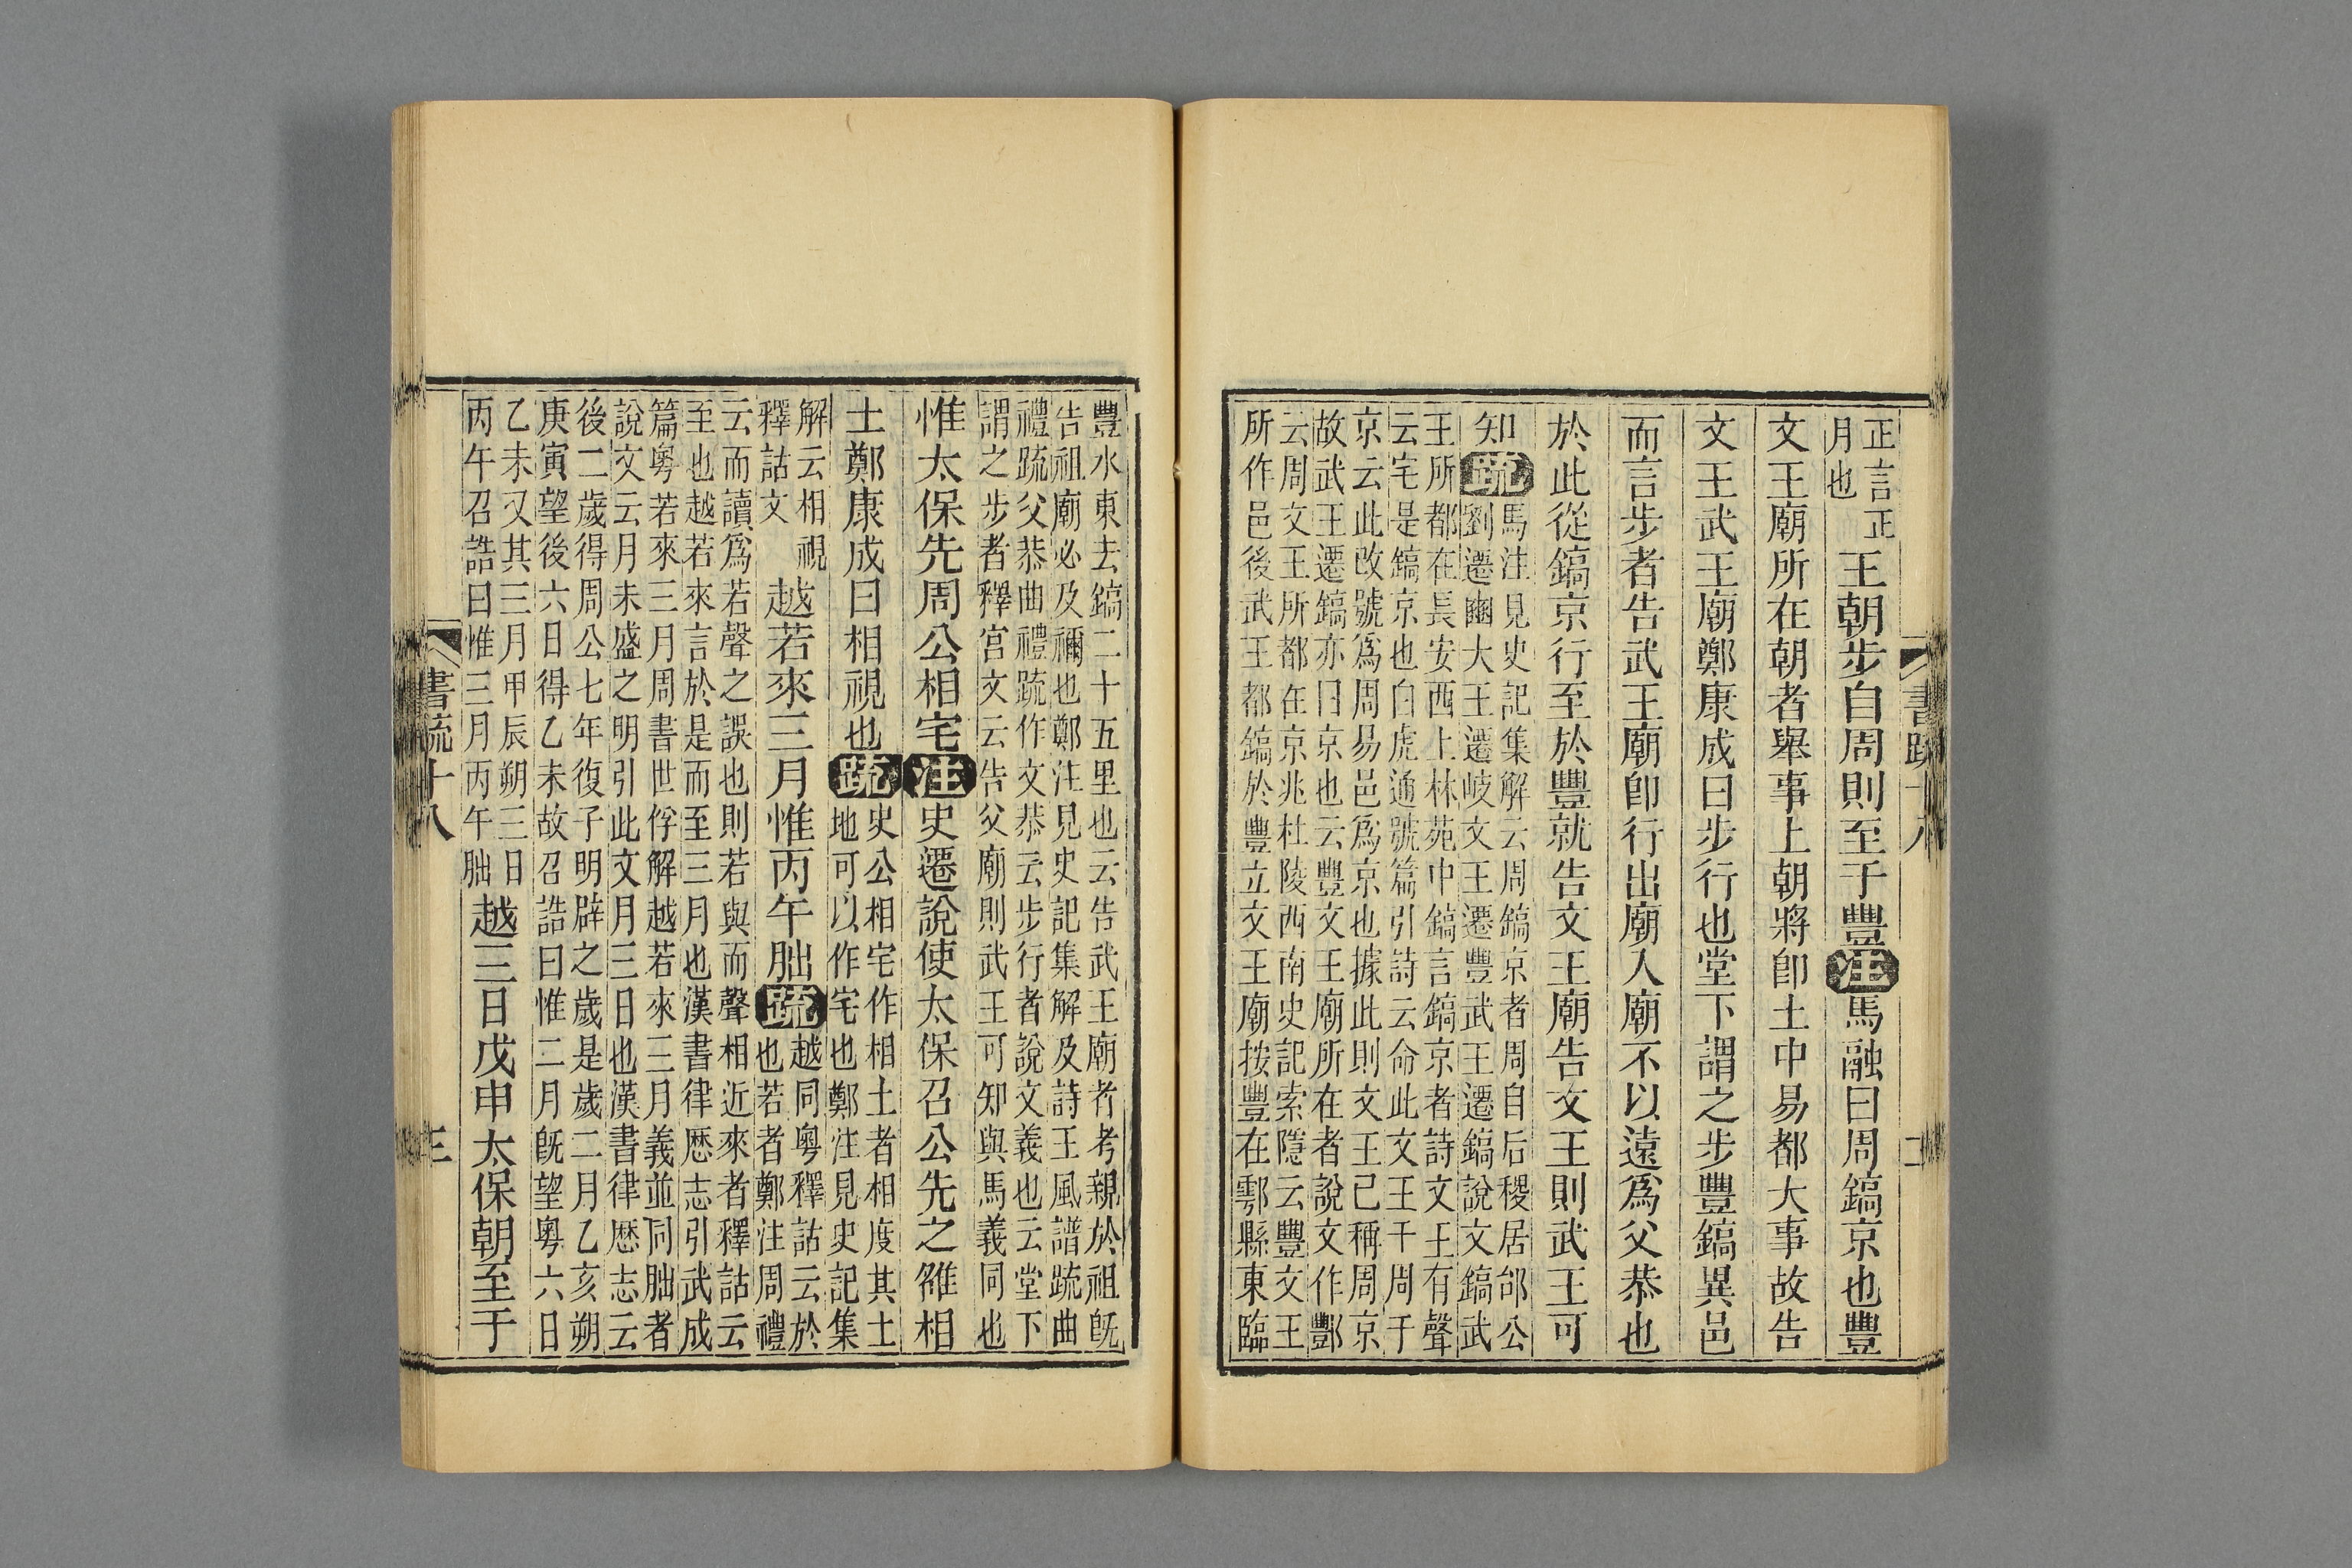 正言正
月也
王朝步自周則至于豐注馬融曰周鎬京也豐
文王廟所在朝者舉事上朝將卽土中易都大事故告
文王武王廟鄭康成曰步行也堂下謂之步豐鎬異邑
而言步者告武王廟卽行出廟入廟不以遠爲父恭也
於此從鎬京行至於豐就告文王廟告文王則武王可
知疏
馬注見史記集解云周鎬京者周自后稷居邰公
劉遷豳大王遷岐文王遷豐武王遷鎬說文鎬武
王所都在長安西上林苑中鎬言鎬京者詩文王有聲
云宅是鎬京也白虎通號篇引詩云命此文王于周于
京云此改號爲周易邑爲京也據此則文王已稱周京
故武王遷鎬亦曰京也云豐文王廟所在者說文作酆
云周文王所都在京兆杜陵西南史記索隱云豐文王
所作邑後武王都鎬於豐立文王廟按豐在鄠縣東臨
書疏十八
二
豐水東去鎬二十五里也云告武王廟者考親於祖旣
告祖廟必及禰也鄭注見史記集解及詩王風譜疏曲
禮疏父恭曲禮疏作文恭云步行者說文義也云堂下
謂之步者釋宮文云告父廟則武王可知與馬義同也
惟太保先周公相宅注史遷說使太保召公先之雒相
土鄭康成曰相視也疏
史公相宅作相土者相度其土
地可以作宅也鄭注見史記集
解云相視
釋詁文
越若來三月惟丙午朏疏
越同粵釋詁云於
也若者鄭注周禮
云而讀爲若聲之誤也則若與而聲相近來者釋詁云
至也越若來言於是而至三月也漢書律厯志引武成
篇粵若來三月周書世俘解越若來三月義並同朏者
說文云月未盛之明引此文月三日也漢書律厯志云
後二歲得周公七年復子明辟之歲是歲二月乙亥朔
庚寅望後六日得乙未故召誥曰惟二月旣望粵六日
乙未又其三月甲辰朔三日
丙午召誥曰惟三月丙午朏
越三日戊申太保朝至于
書疏十八
三